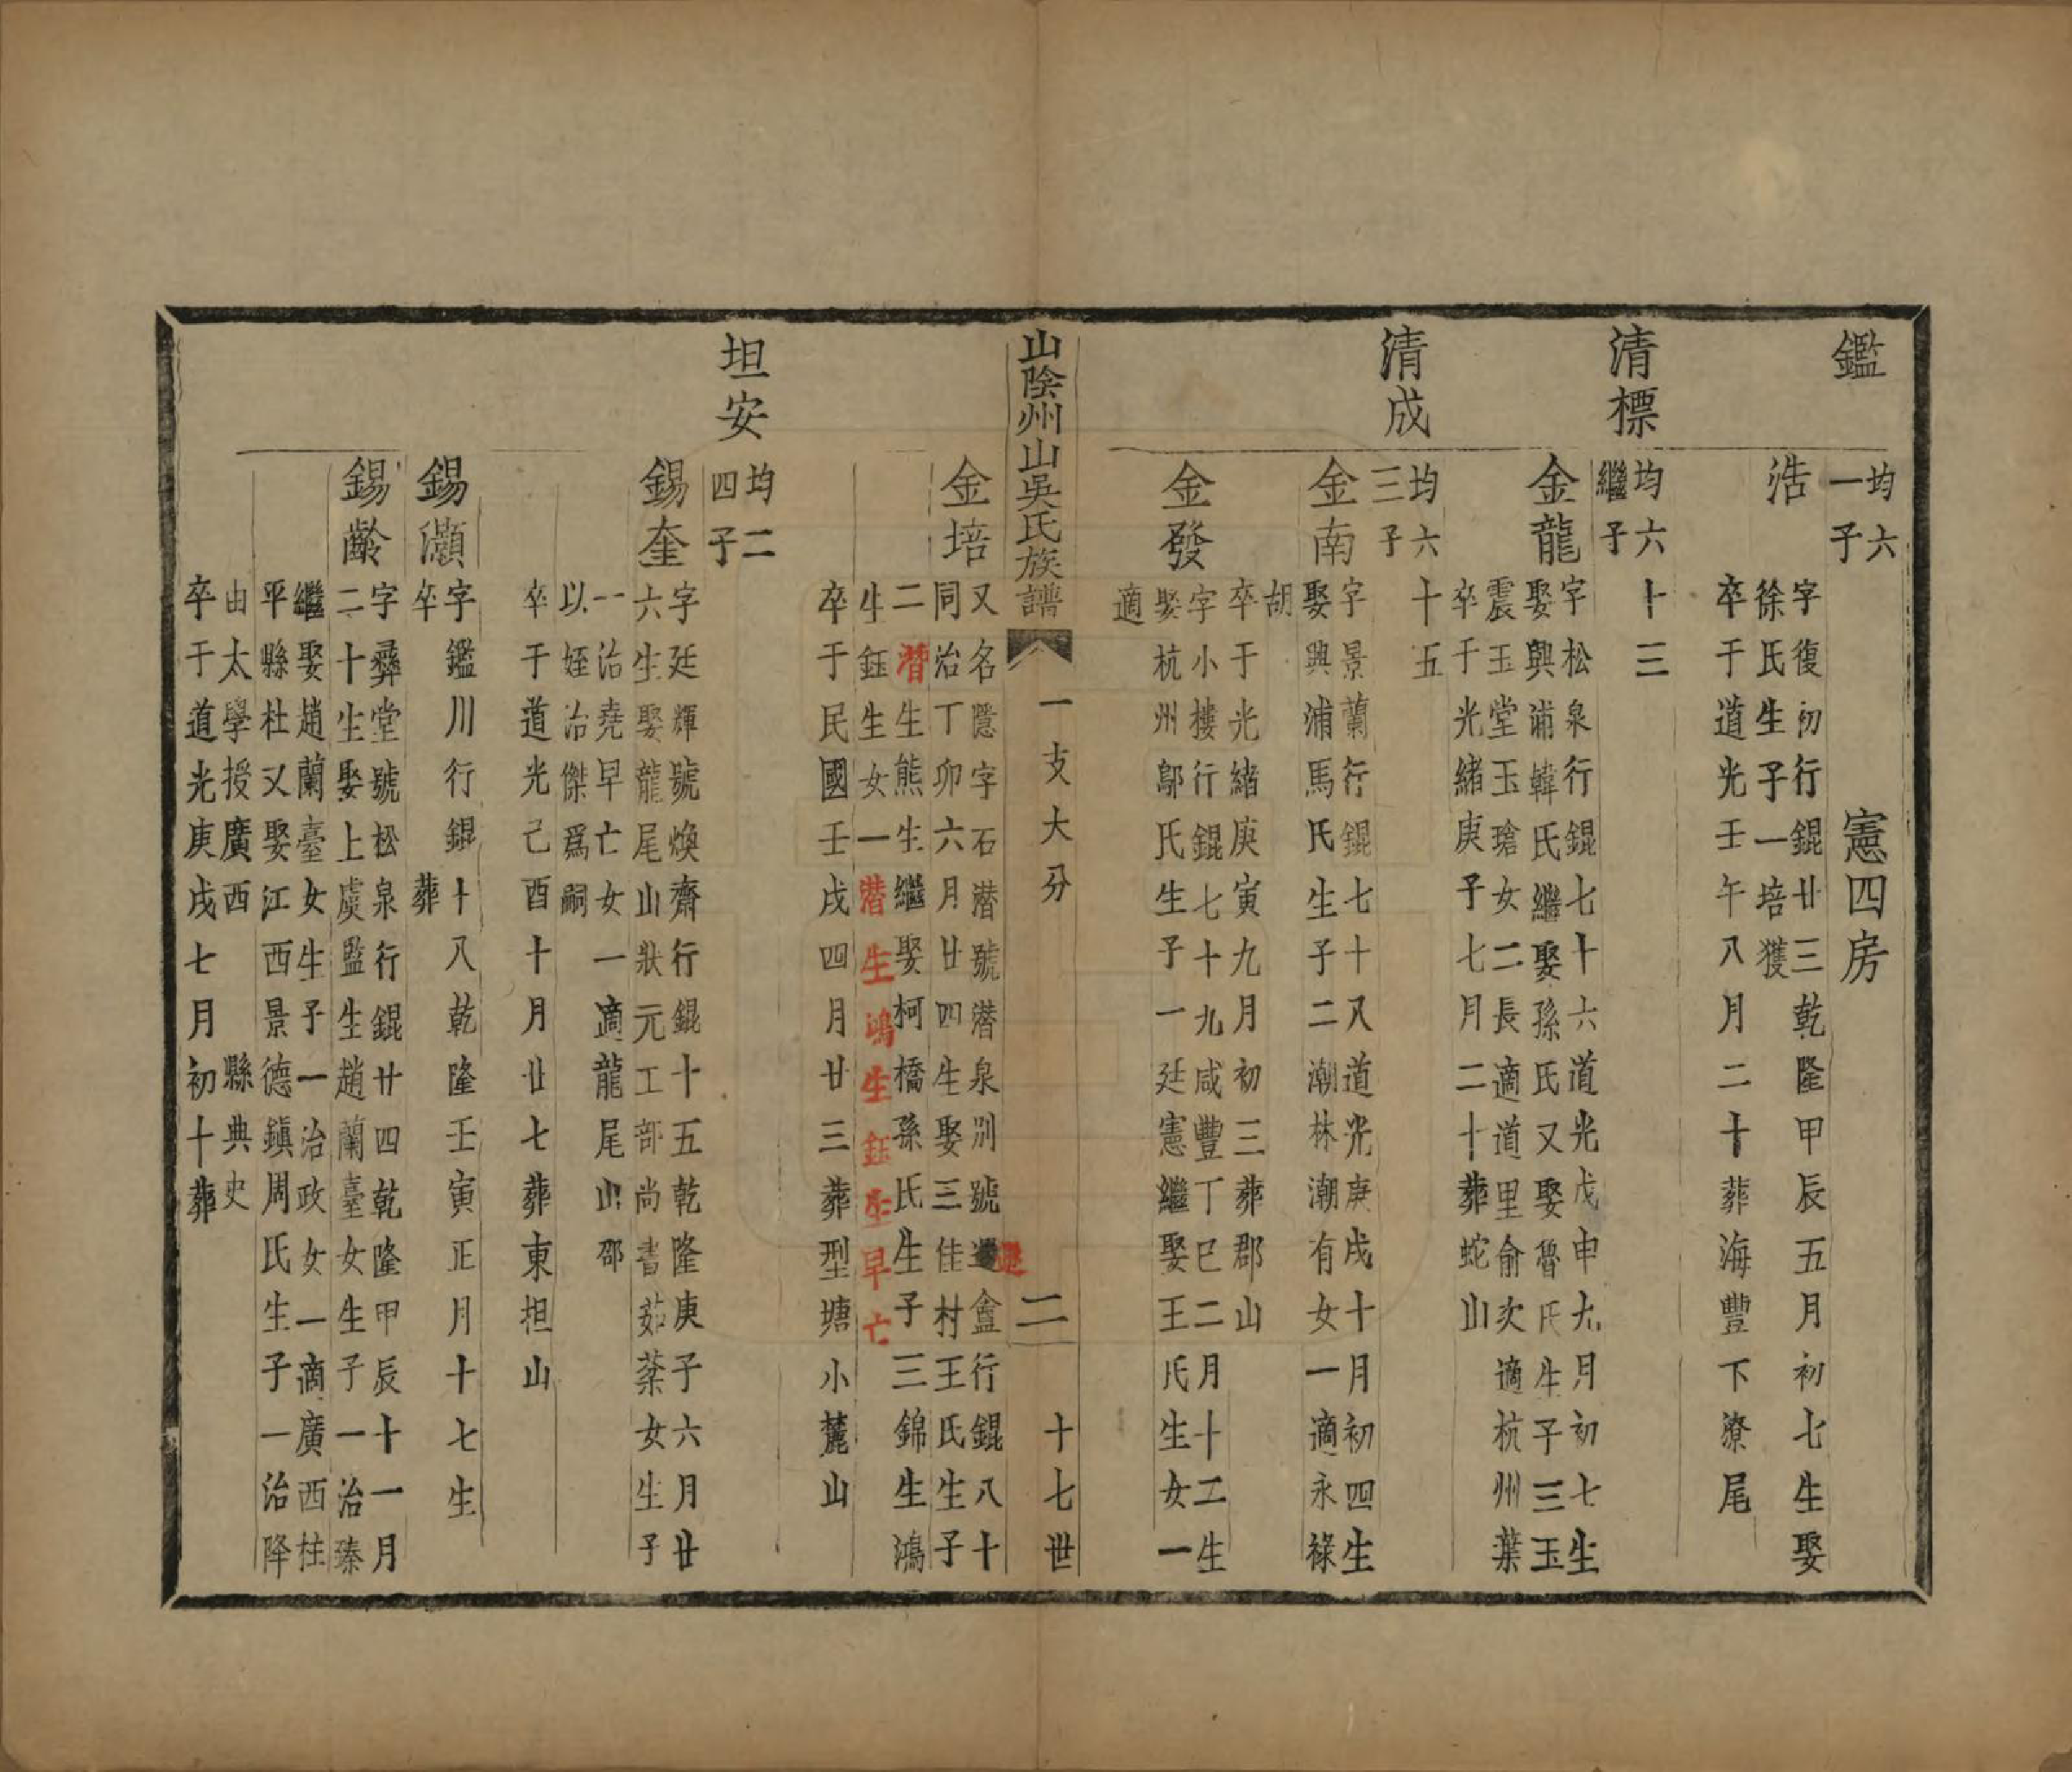 憲四房
鑑
均六
一子
浩
字復初行錕廿三乾隆甲辰五月初七生娶
徐氏生子一培獲
卒于道光壬午八月二十葬海豐下潦尾
清標
均六十三
繼子
金龍
字松泉行錕七十六道光戊申九月初七生
娶興浦韓氏繼娶孫氏又娶魯氏生子三玉
震玉堂玉瑲女二長適道里俞次適杭州葉
卒于光緒庚子七月二十葬蛇山
清成
均六十五
三子
金南
字景蘭行錕七十又道光庚戌十月初四生
娶興浦馬氏生子二潮林潮有女一適永祿
胡
卒于光緒庚寅九月初三葬郡山
金發
字小樓行錕七十九咸豐丁巳二月十二生
娶杭州鄔氏生子一廷憲繼娶王氏生女一
適
山陰州山吳氏族譜
一支大分
二
十七世
金培
又名隱字石潛號潛泉別號遯盦行錕八十
同治丁卯六月廿四生娶三佳村王氏生子
二潛生熊生繼娶柯橋孫氏生子三錦生鴻
生鈺生女一
潛生鴻生鈺生早亡
卒于民國壬戌四月廿三葬型塘小麓山
坦安
均二
四子
錫奎
字廷輝號煥齋行錕十五乾隆庚子六月廿
六生娶龍尾山狀元工部尚書茹棻女生子
一治堯早亡女一適龍尾山邵
以姪治傑爲嗣
卒于道光己酉十月廿七葬東担山
錫灝
字鑑川行錕十八乾隆壬寅正月十七生
卒 葬
錫齡
字彝堂號松泉行錕廿四乾隆甲辰十一月
二十生娶上虞監生趙蘭臺女生子一治臻
繼娶趙蘭臺女生子一治政女一適廣西桂
平縣杜又娶江西景德鎮周氏生子一治降
由太學授廣西 縣典史
卒于道光庚戌七月初十葬